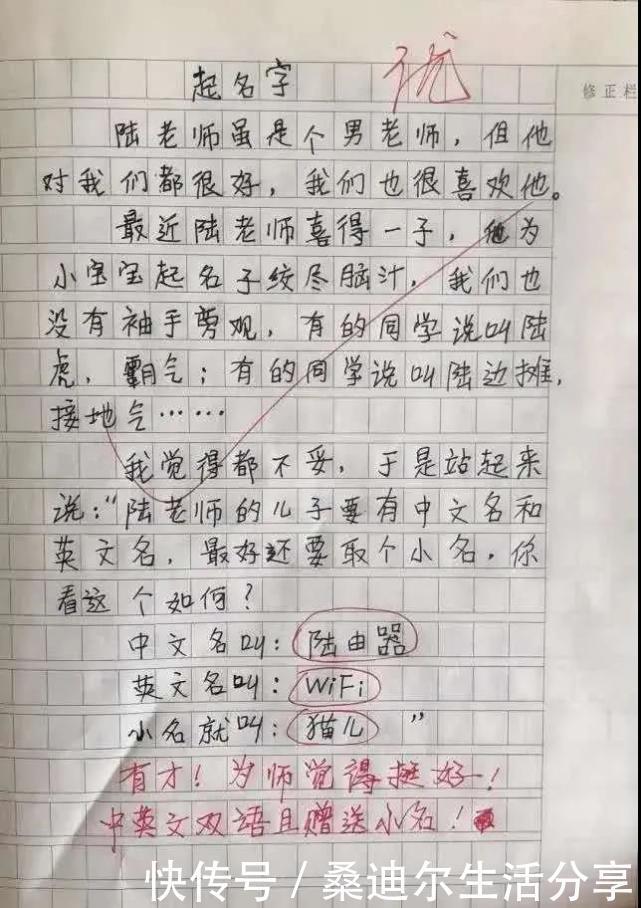 起名字
优
修正栏
陆老师虽是个男老师，但他
对我们都很好，我们也很喜欢他。
最近陆老师喜得一子，他为
小宝宝起名子绞尽脑汁，我们也
没有袖手旁观，有的同学说叫陆
虎，霸气；有的同学说叫陆边摊，
接地气……
我觉得都不妥，于是站起来
说：“陆老师的儿子要有中文名和
英文名，最好还要取个小名，你
看这个如何？
中文名叫：陆由器
英文名叫：WiFi
小名就叫：猫儿”
有才！为师觉得挺好！
中英文双语且赠送小名！
快传号/桑迪尔生活分享